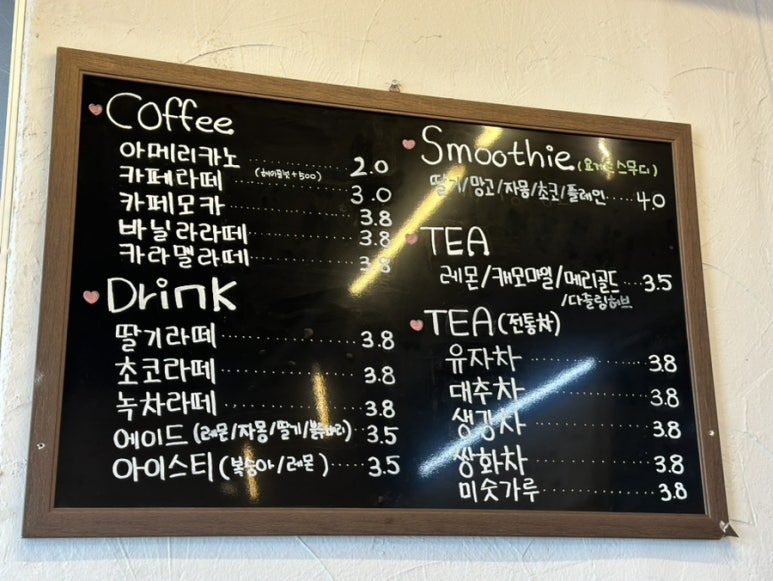 Coffee
아메리카노 ........ 2.0
카페라떼 (헤이즐넛+500) 3.0
카페모카 ........ 3.8
바닐라라떼 ........ 3.8
카라멜라떼 ........ 3.8
Drink
딸기라떼 ........ 3.8
초코라떼 ........ 3.8
녹차라떼 ........ 3.8
에이드 (레몬/자몽/딸기/블루베리) 3.5
아이스티 (복숭아/레몬) ..... 3.5
Smoothie (요거트스무디)
딸기/망고/자몽/초코/플레인 ..... 4.0
TEA
레몬/캐모마일/메리골드 ... 3.5
/다즐링허브
TEA (전통차)
유자차 ........ 3.8
대추차 ........ 3.8
생강차 ........ 3.8
쌍화차 ........ 3.8
미숫가루 ........ 3.8